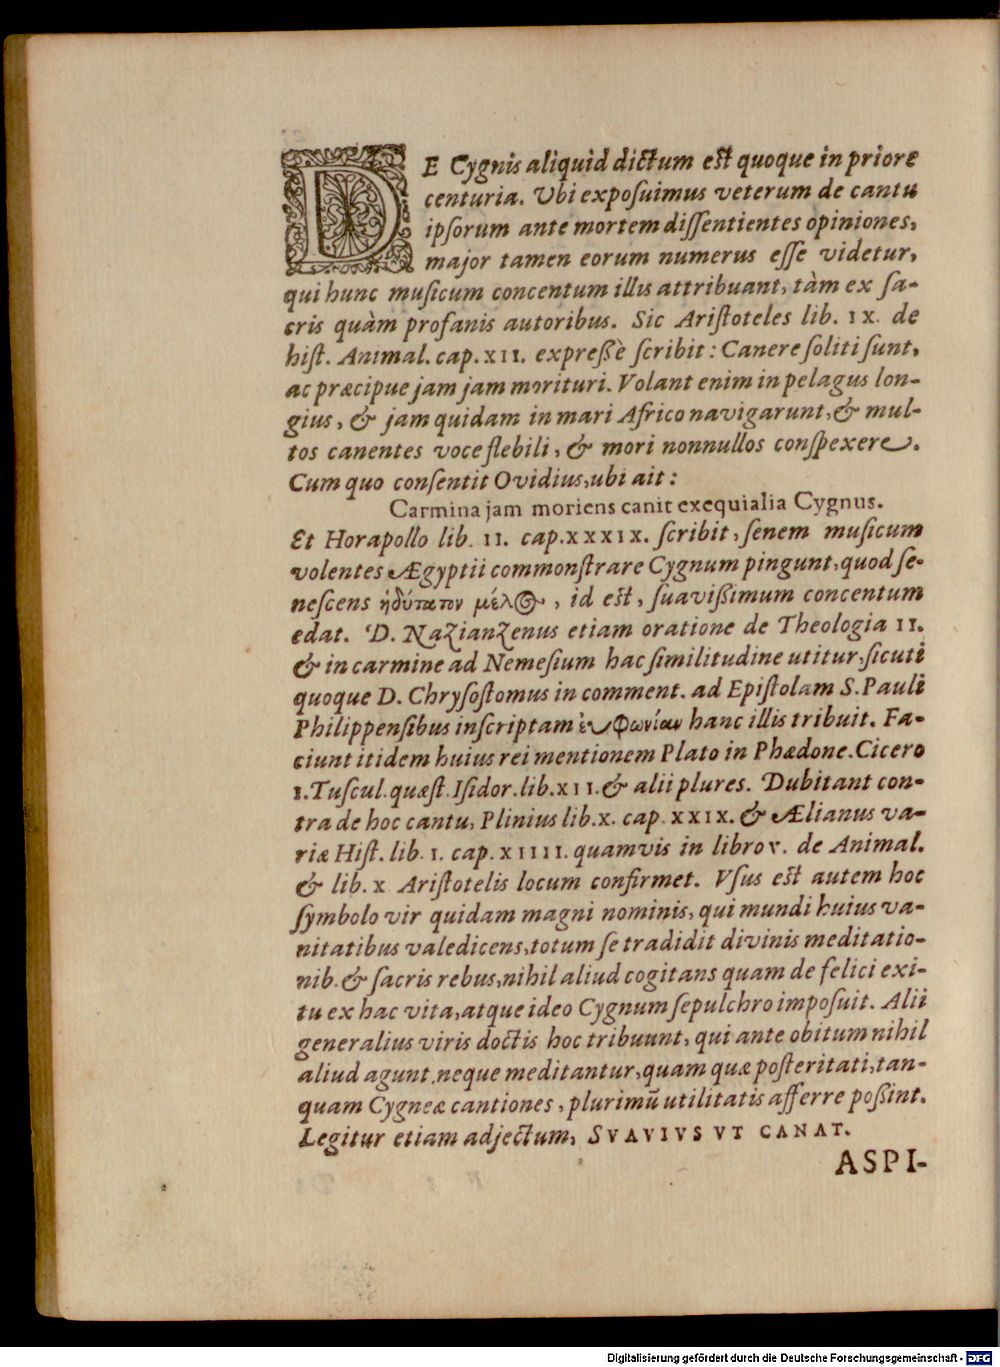 DE Cygnis aliquid dictum est quoque in priore
centuria. Ubi exposuimus veterum de cantu
ipsorum ante mortem dissentientes opiniones,
major tamen eorum numerus esse videtur,
qui hunc musicum concentum illis attribuant, tàm ex sa-
cris quàm profanis autoribus. Sic Aristoteles lib. IX. de
hist. Animal. cap. XII. expreßè scribit: Canere soliti sunt,
ac præcipue jam jam morituri. Volant enim in pelagus lon-
gius, & jam quidam in mari Africo navigarunt, & mul-
tos canentes voce flebili, & mori nonnullos conspexere.
Cum quo consentit Ovidius, ubi ait:
Carmina jam moriens canit exequialia Cygnus.
Et Horapollo lib. II. cap. XXXIX. scribit, senem musicum
volentes Ægyptii commonstrare Cygnum pingunt, quod se-
nescens ἡδύτατον μέλος, id est, suavißimum concentum
edat. D. Nazianzenus etiam oratione de Theologia II.
& in carmine ad Nemesium hac similitudine utitur, sicuti
quoque D. Chrysostomus in comment. ad Epistolam S. Pauli
Philippensibus inscriptam εὐφωνίαν hanc illis tribuit. Fa-
ciunt itidem huius rei mentionem Plato in Phædone. Cicero
I. Tuscul. quæst. Isidor. lib. XII. & alii plures. Dubitant con-
tra de hoc cantu, Plinius lib. X. cap. XXIX. & Ælianus va-
riæ Hist. lib. I. cap. XIIII. quamvis in libro V. de Animal.
& lib. X Aristotelis locum confirmet. Vsus est autem hoc
symbolo vir quidam magni nominis, qui mundi huius va-
nitatibus valedicens, totum se tradidit divinis meditatio-
nib. & sacris rebus, nihil aliud cogitans quam de felici exi-
tu ex hac vita, atque ideo Cygnum sepulchro imposuit. Alii
generalius viris doctis hoc tribuunt, qui ante obitum nihil
aliud agunt neque meditantur, quam quæ posteritati, tan-
quam Cygneæ cantiones, plurimũ utilitatis afferre poßint.
Legitur etiam adjectum, SVAVIVS VT CANAT.
ASPI-
Digitalisierung gefördert durch die Deutsche Forschungsgemeinschaft - DFG